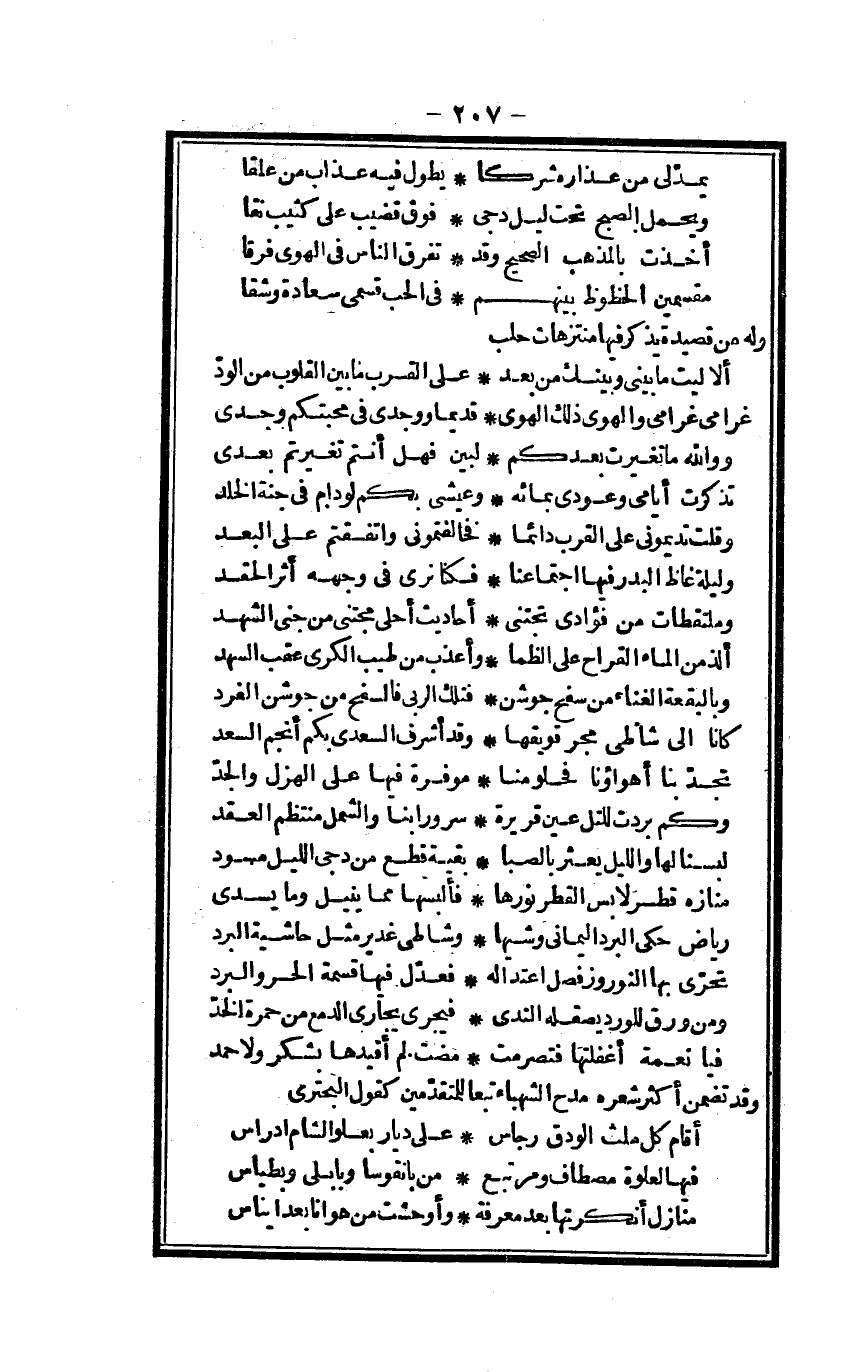 - ٢٠٧ -
يمدّلى من عذاره شركا * يطول فيه عذاب من علقا
ويحمل الصبح تحت ليل دجى * فوق قضيب على كثيب نقا
أخذت بالمذهب الصحيح وقد * تفرق الناس فى الهوى فرقا
مقسمين الحظوظ بينهم * فى الحب قسمى سعادة وشقا
وله من قصيدة يذكر فيها منتزهات حلب
ألا ليت ما بينى وبينك من بعد * على القرب ما بين القلوب من الودّ
غرامى غرامى والهوى ذلك الهوى * قديما ووجدى فى محبتكم وجدى
ووالله ما تغيرت بعدكم * لبين فهل أنتم تغيرتم بعدى
تذكرت أيامى وعودى بمائه * وعيشى بكم لو دام فى جنة الخلد
وقلت تديمونى على القرب دائما * فخالفتمونى واتفقتم على البعد
وليلة غاظ البدر فيها اجتماعنا * فكنا نرى فى وجهه أثر الحقد
وملتقطات من فؤادى تجتنى * أحاديث أحلى مجتنى من جنى الشهد
ألذ من الماء القراح على الظما * وأعذب من طيب الكرى عقب السهد
وبالبقعة الغناء من سفح جوشن * فتلك الربى فالسفح من جوشن الفرد
كانا الى شاطى مجر قويقها * وقد أشرف السعدى بكم أنجم السعد
تجدّ بنا أهواؤنا فحلومنا * موفرة فيها على الهزل والجدّ
وكم بردت للتل عين قريرة * سرورا بنا والشمل منتظم العقد
لبسنا لها والليل يعثر بالصبا * بقية قطع من دجى الليل مسود
منازه قطر لابس القطر نورها * فألبسها مما ينيل وما يسدى
رياض حكى البرد اليمانى وشيها * وشاطى غدير مثل حاشية البرد
تحرّى بها النوروز فصل اعتداله * فعدّل فيها قسمة الحر والبرد
ومن ورق للورد يصقله الندى * فيجرى مجارى الدمع من حمرة الخدّ
فيا نعمة أغفلتها فتصرمت * مضت لم أقيدها بشكر ولا حمد
وقد تضمن أكثر شعره مدح الشهباء تبعا للمتقدّمين كقول البحترى
أقام كل ملث الودق رجاس * على ديار بعلو الشام ادراس
فيها لعلوة مصطاف ومرتبع * من بانقوسا وبابلى وبطياس
منازل أنكرتها بعد معرفة * وأوحشت من هوانا بعد ايناس